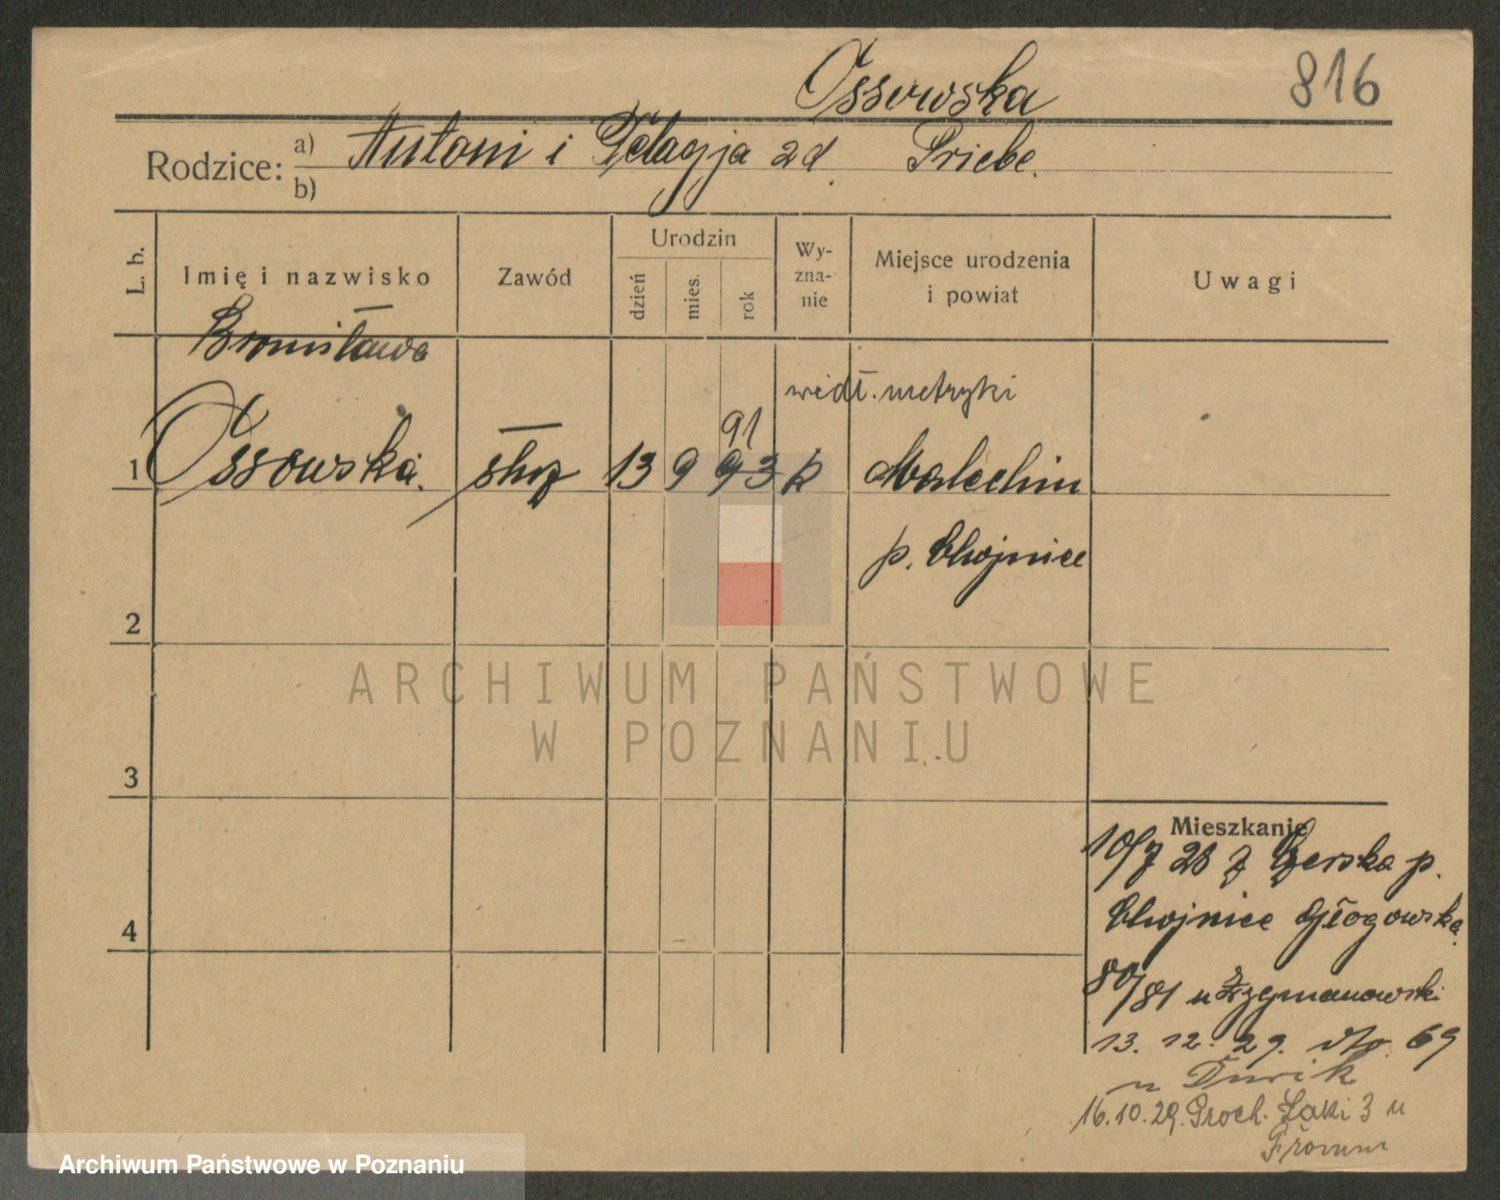 Ossowska 816
Rodzice: a) Antoni i Pelagja zd. Priebe.
b)
L. b. Imię i nazwisko Zawód Urodzin dzień mies. rok Wy-zna-nie Miejsce urodzenia i powiat Uwagi
Bronisława
wedł. metryki
91
1 Ossowska. służ 13 9 93 k Malachin
p. Chojnice
2
ARCHIWUM PAŃSTWOWE
W POZNANIU
3
Mieszkanie
10/7 28 z Czerska p.
4 Chojnice Głogowska
80/81 u Szymanowski
13. 12. 29. dto 69
u Ćwik
16.10.29. Groch. Łąki 3 u
Fromm
Archiwum Państwowe w Poznaniu